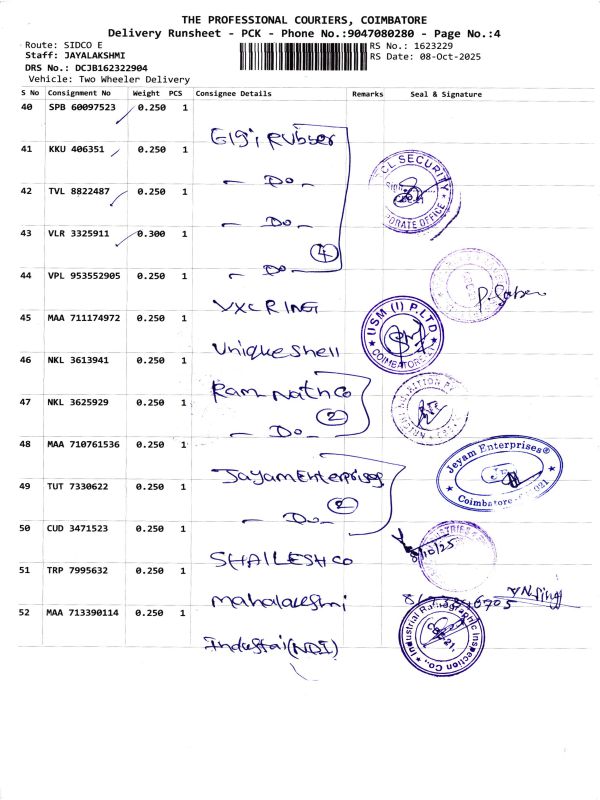 THE PROFESSIONAL COURIERS, COIMBATORE
Delivery Runsheet - PCK - Phone No.:9047080280 - Page No.:4
Route: SIDCO E
Staff: JAYALAKSHMI
DRS No.: DCJB162322904
Vehicle: Two Wheeler Delivery
RS No.: 1623229
RS Date: 08-Oct-2025
S No Consignment No Weight PCS Consignee Details Remarks Seal & Signature
40 SPB 60097523 0.250 1
Gigi Rubber
41 KKU 406351 0.250 1
- Do -
CL SECURITY
42 TVL 8822487 0.250 1
- Do -
PORATE OFFICE
43 VLR 3325911 0.300 1
- Do -
4
44 VPL 953552905 0.250 1
VXC RING
45 MAA 711174972 0.250 1
Unique Shell
USM (I) P.LTD
COIMBATORE
46 NKL 3613941 0.250 1
Ram Nath Co
47 NKL 3625929 0.250 1
- Do -
2
48 MAA 710761536 0.250 1
Jayam Enterprises
Jeyam Enterprises®
Coimbatore
021
49 TUT 7330622 0.250 1
- Do -
2
50 CUD 3471523 0.250 1
SHAILESH CO
8/10/25
51 TRP 7995632 0.250 1
mahalakshmi
52 MAA 713390114 0.250 1
Industrial Radiographic Inspection Co.,
(NDI)